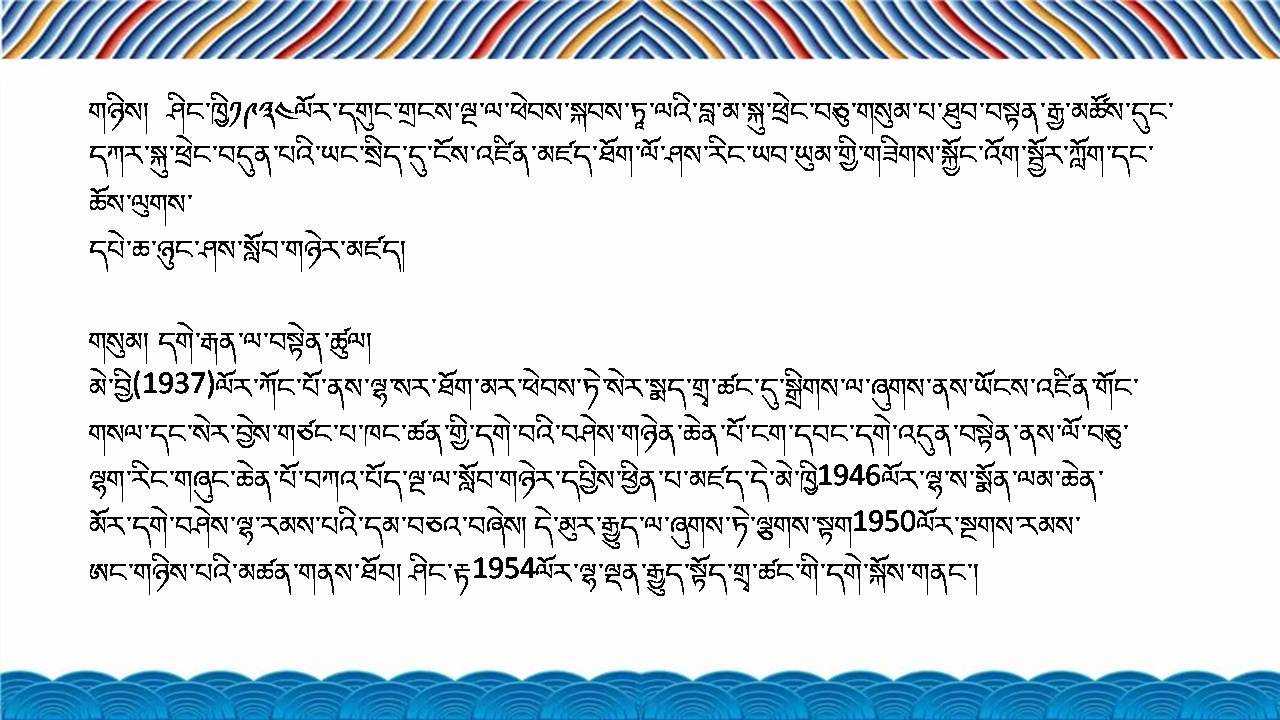 གཉིས། ཤིང་ཁྱི༡༩༣༤ལོར་དགུང་གྲངས་ལྔ་ལ་ཕེབས་སྐབས་ཏཱ་ལའི་བླ་མ་སྐུ་ཕྲེང་བཅུ་གསུམ་པ་ཐུབ་བསྟན་རྒྱ་མཚོས་དུང་
དཀར་སྐུ་ཕྲེང་བདུན་པའི་ཡང་སྲིད་དུ་ངོས་འཛིན་མཛད་ཐོག་ལོ་ཤས་རིང་ཡབ་ཡུམ་གྱི་གཟིགས་སྐྱོང་འོག་སྦྱོར་ཀློག་དང་
ཆོས་ལུགས་
དཔེ་ཆ་ཉུང་ཤས་སློབ་གཉེར་མཛད།
གསུམ། དགེ་རྒན་ལ་བསྟེན་ཚུལ།
མེ་བྱི(1937)ལོར་ཀོང་པོ་ནས་ལྷ་སར་ཐོག་མར་ཕེབས་ཏེ་སེར་སྨད་གྲྭ་ཚང་དུ་སྒྲིགས་ལ་ཞུགས་ནས་ཡོངས་འཛིན་གོང་
གསལ་དང་སེར་བྱེས་གཙང་པ་ཁང་ཚན་གྱི་དགེ་བའི་བཤེས་གཉེན་ཆེན་པོ་ངག་དབང་དགེ་འདུན་བསྟེན་ནས་ལོ་བཅུ་
ལྷག་རིང་གཞུང་ཆེན་པོ་བཀའ་པོད་ལྔ་ལ་སློབ་གཉེར་དབྱིས་ཕྱིན་པ་མཛད་དེ་མེ་ཁྱི1946ལོར་ལྷ་ས་སྨོན་ལམ་ཆེན་
མོར་དགེ་བཤེས་ལྷ་རམས་པའི་དམ་བཅའ་བཞེས། དེ་མུར་རྒྱུད་ལ་ཞུགས་ཏེ་ལྕགས་སྟག1950ལོར་སྔགས་རམས་
ཨང་གཉིས་པའི་མཚན་གནས་ཐོབ། ཤིང་རྟ1954ལོར་ལྷ་ལྡན་རྒྱུད་སྟོད་གྲྭ་ཚང་གི་དགེ་སྐོས་གནང་།